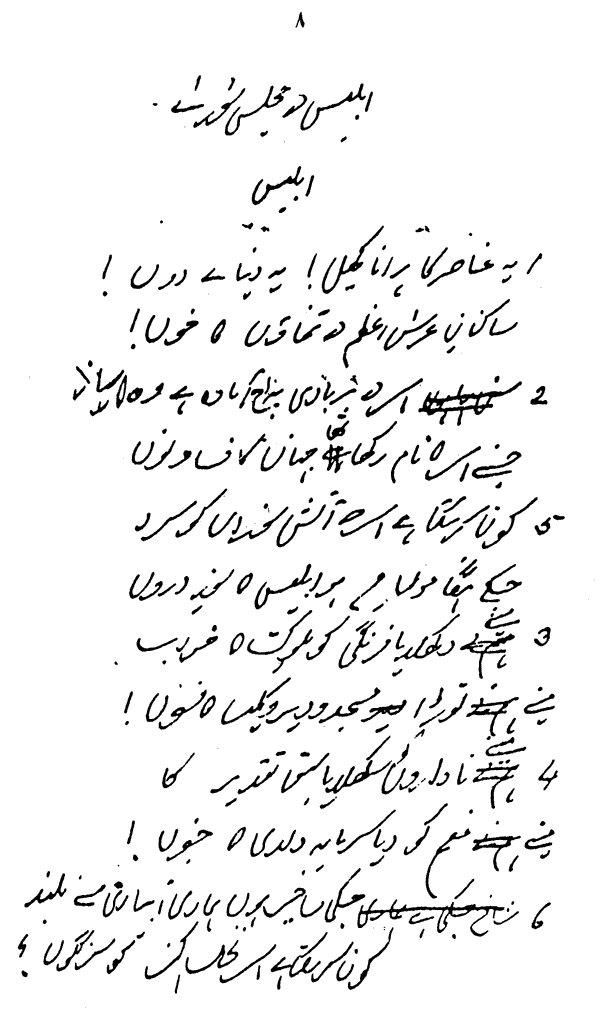 ۸
ابلیس کی مجلسِ شوریٰ
ابلیس
1 یہ عناصر کا پرانا کھیل! یہ دنیائے دوں!
ساکنانِ عرشِ اعظم کی تمناؤں کا خوں!
2 اس کی بربادی پہ آج آمادہ ہے وہ کارساز
جس نے اس کا نام رکھا تھا جہانِ کاف و نوں
5 کون کر سکتا ہے اس کی آتشِ سوزاں کو سرد
جس کے ہنگاموں میں ہو ابلیس کا سوزِ دروں
3 میں نے دکھلایا فرنگی کو ملوکیت کا خواب
میں نے توڑا مسجد و دیر و کلیسا کا فسوں!
4 میں نے ناداروں کو سکھلایا سبق تقدیر کا
میں نے منعم کو دیا سرمایہ داری کا جنوں!
6 جس کی شاخیں ہوں ہماری آبیاری سے بلند
کون کر سکتا ہے اس نخلِ کہن کو سرنگوں؟